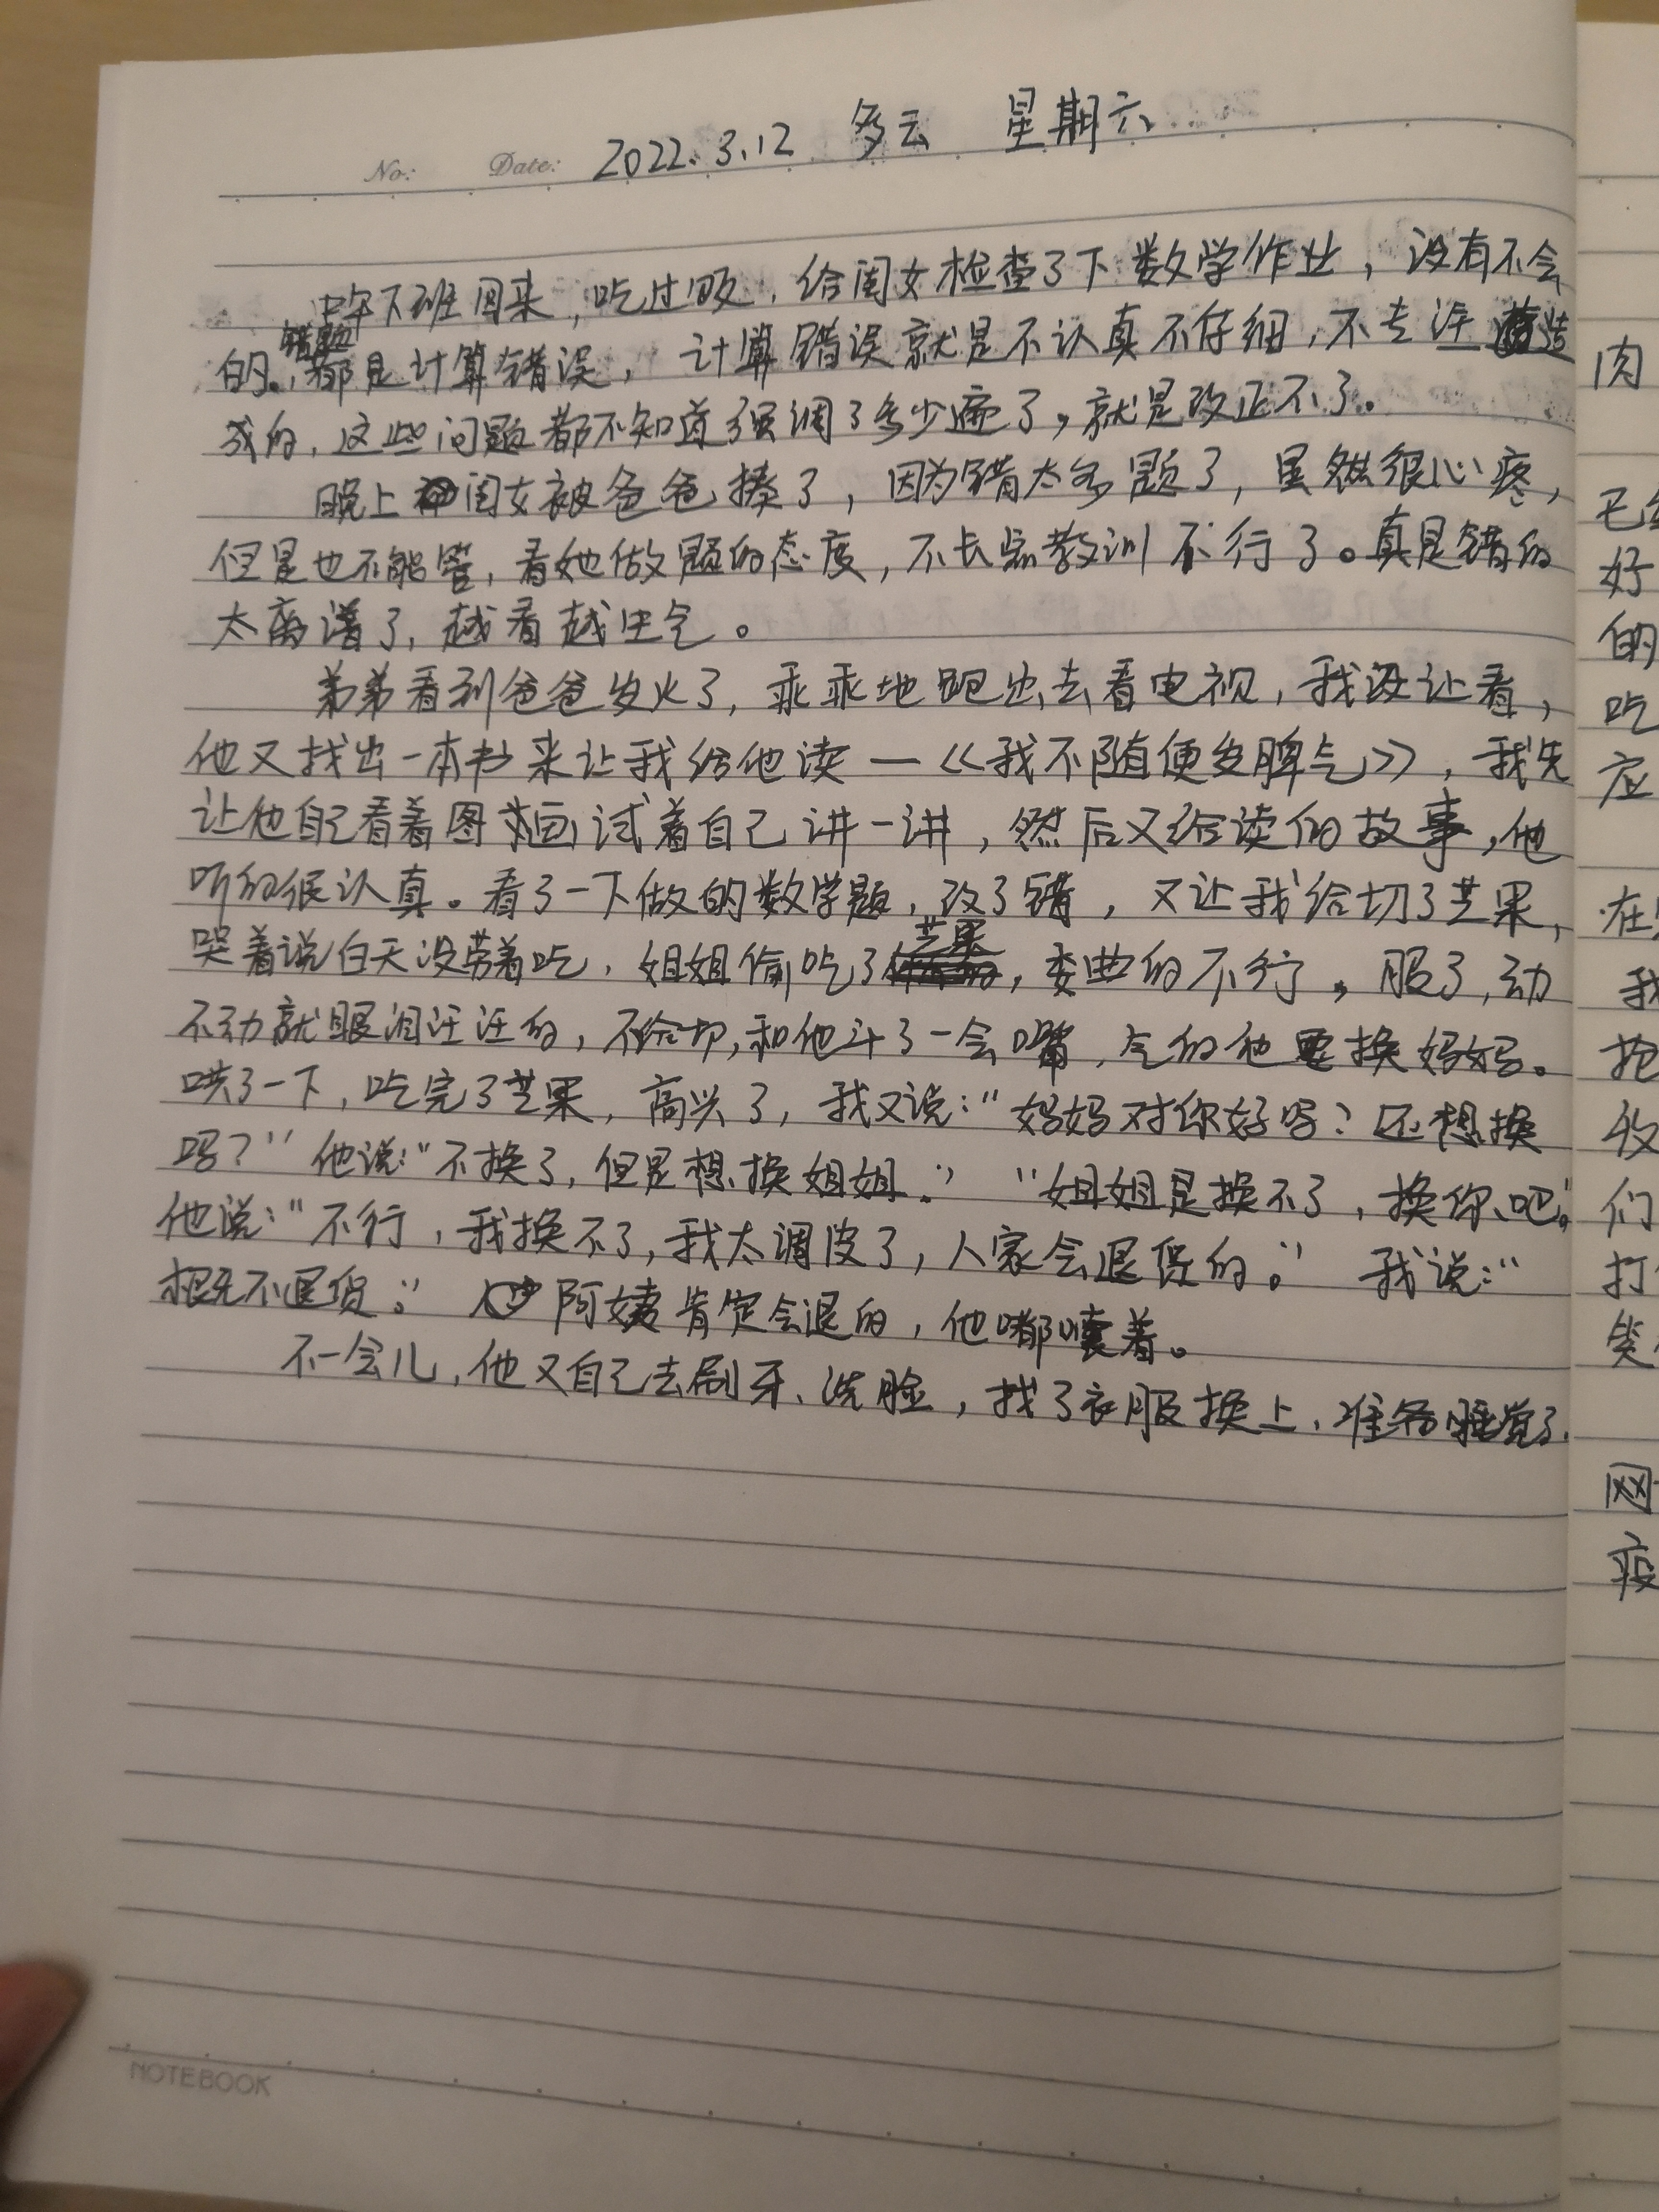 No: Date: 2022.3.12 多云 星期六
中午下班回来，吃过饭，给闺女检查了下数学作业，没有不会
的。错题都是计算错误，计算错误就是不认真不仔细，不专注造
成的，这些问题都不知道强调了多少遍了，就是改正不了。
晚上闺女被爸爸揍了，因为错太多题了，虽然很心疼，
但是也不能管，看她做题的态度，不长点教训不行了。真是错的
太离谱了，越看越生气。
弟弟看到爸爸发火了，乖乖地跑出去看电视，我没让看，
他又找出一本书来让我给他读—《我不随便发脾气》，我先
让他自己看着图画试着自己讲一讲，然后又给读的故事，他
听的很认真。看了一下做的数学题，改了错，又让我给切了芒果，
哭着说白天没劳着吃，姐姐偷吃了芒果，委曲的不行。服了，动
不动就眼泪汪汪的，不给切，和他斗了一会嘴，气的他要换妈妈。
哄了一下，吃完了芒果，高兴了，我又说：“妈妈对你好吗？还想换
吗？”他说：“不换了，但是想换姐姐。”“姐姐是换不了，换你吧。”
他说：“不行，我换不了，我太调皮了，人家会退货的。”我说：“
概不退货。”阿姨肯定会退的，他嘟囔着。
不一会儿，他又自己去刷牙、洗脸，找了衣服换上，准备睡觉了.
NOTEBOOK
肉
好
的
吃
应
在
我
抢
收
们
打
笑
网
疫